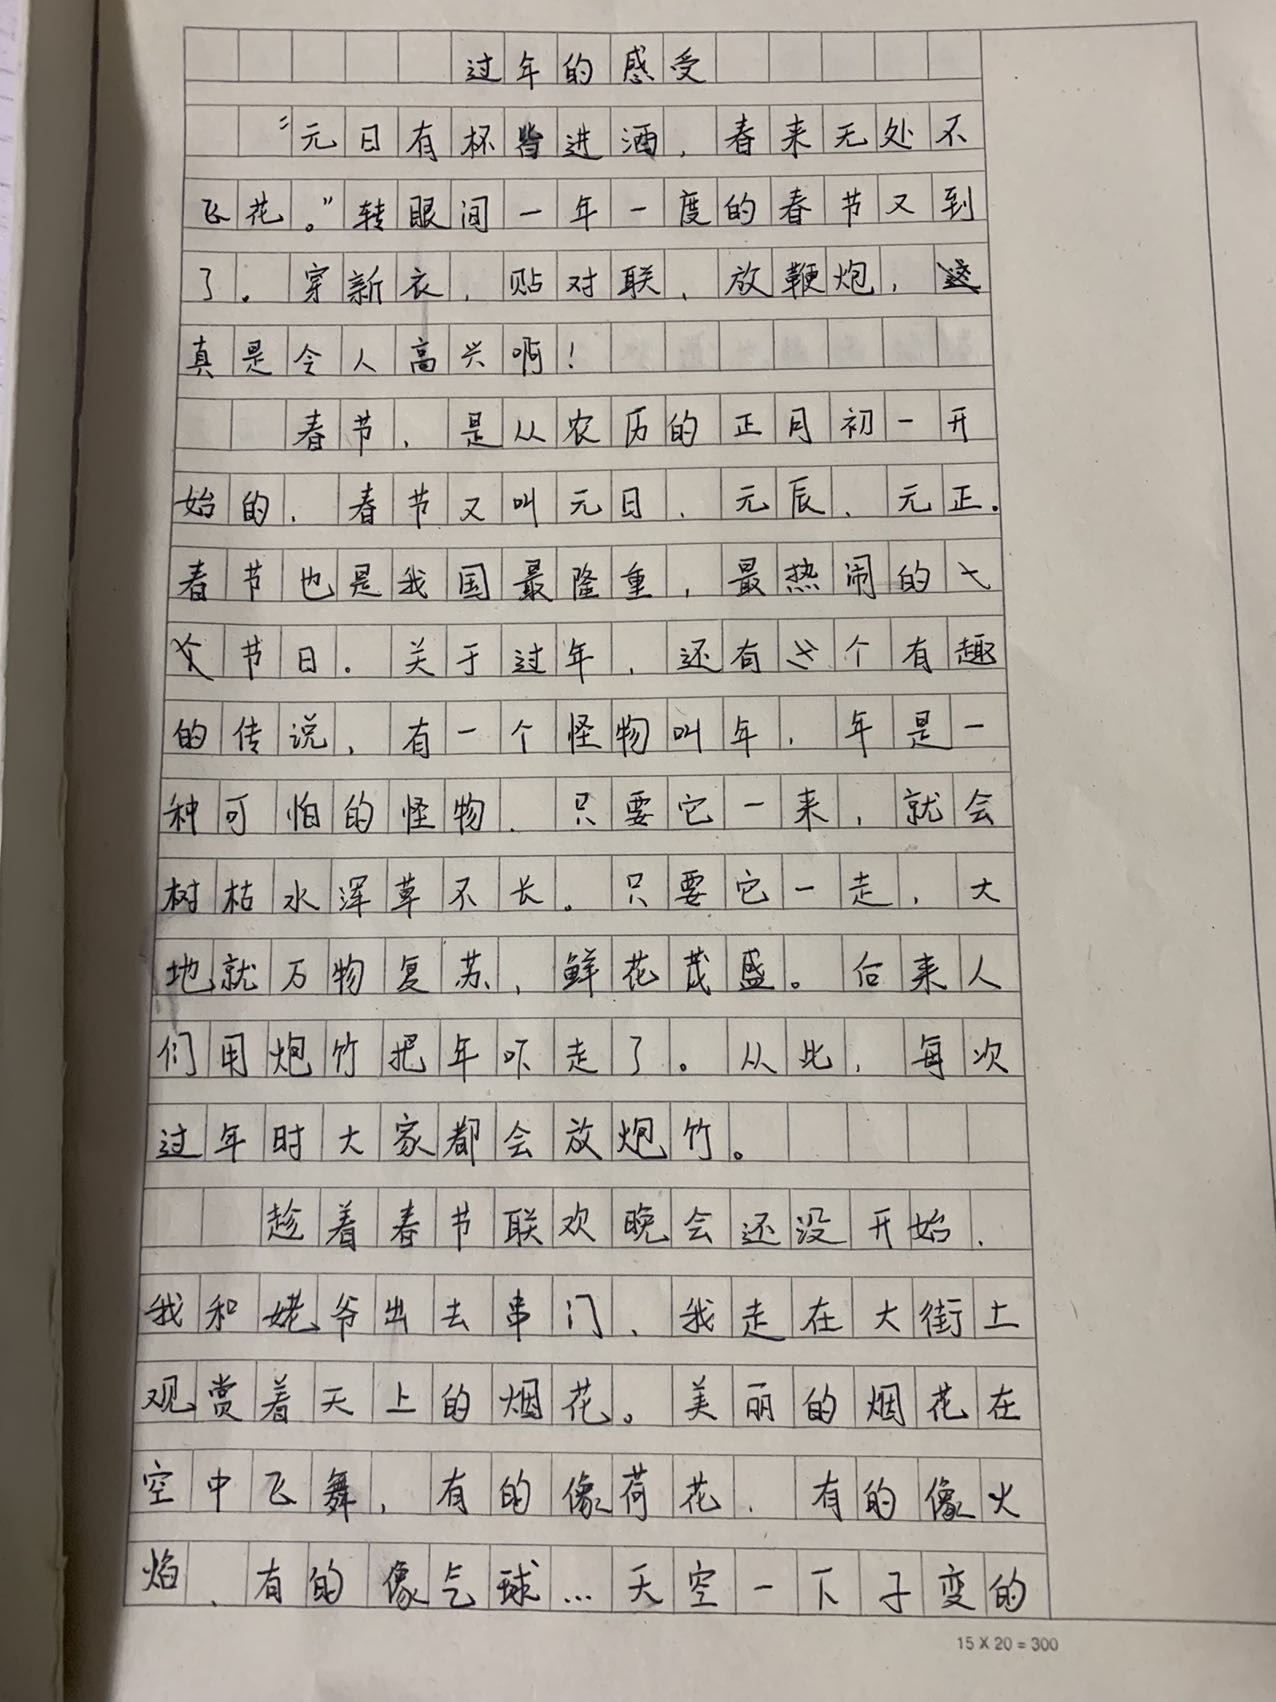 过年的感受
“元日有杯皆进酒，春来无处不
飞花。”转眼间一年一度的春节又到
了。穿新衣，贴对联，放鞭炮，
真是令人高兴啊！
春节，是从农历的正月初一开
始的，春节又叫元日，元辰，元正。
春节也是我国最隆重，最热闹的
节日。关于过年，还有个有趣
的传说，有一个怪物叫年，年是一
种可怕的怪物，只要它一来，就会
树枯水浑草不长。只要它一走，大
地就万物复苏，鲜花茂盛。后来人
们用炮竹把年吓走了。从此，每次
过年时大家都会放炮竹。
趁着春节联欢晚会还没开始，
我和姥爷出去串门，我走在大街上
观赏着天上的烟花。美丽的烟花在
空中飞舞，有的像荷花，有的像火
焰，有的像气球…天空一下子变的
15 X 20 = 300